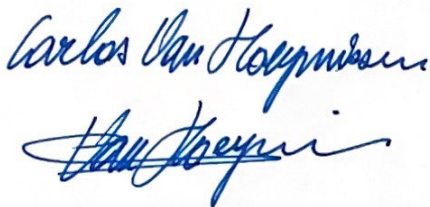 Carlos Van Hoeymissen
Van Hoeymi